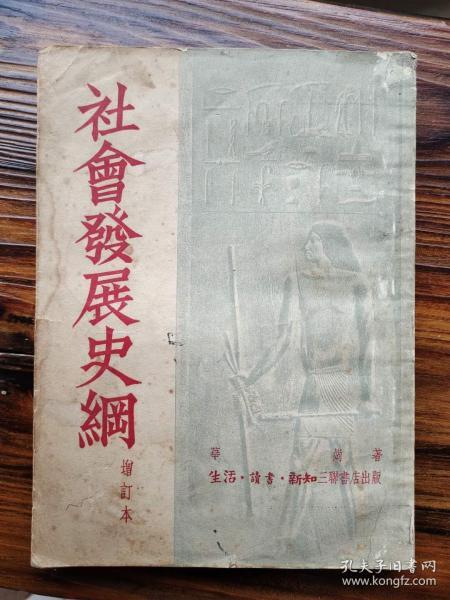 社會發展史綱
增訂本
華崗著
生活·讀書·新知三聯書店出版
孔夫子旧书网
www.kongfz.com